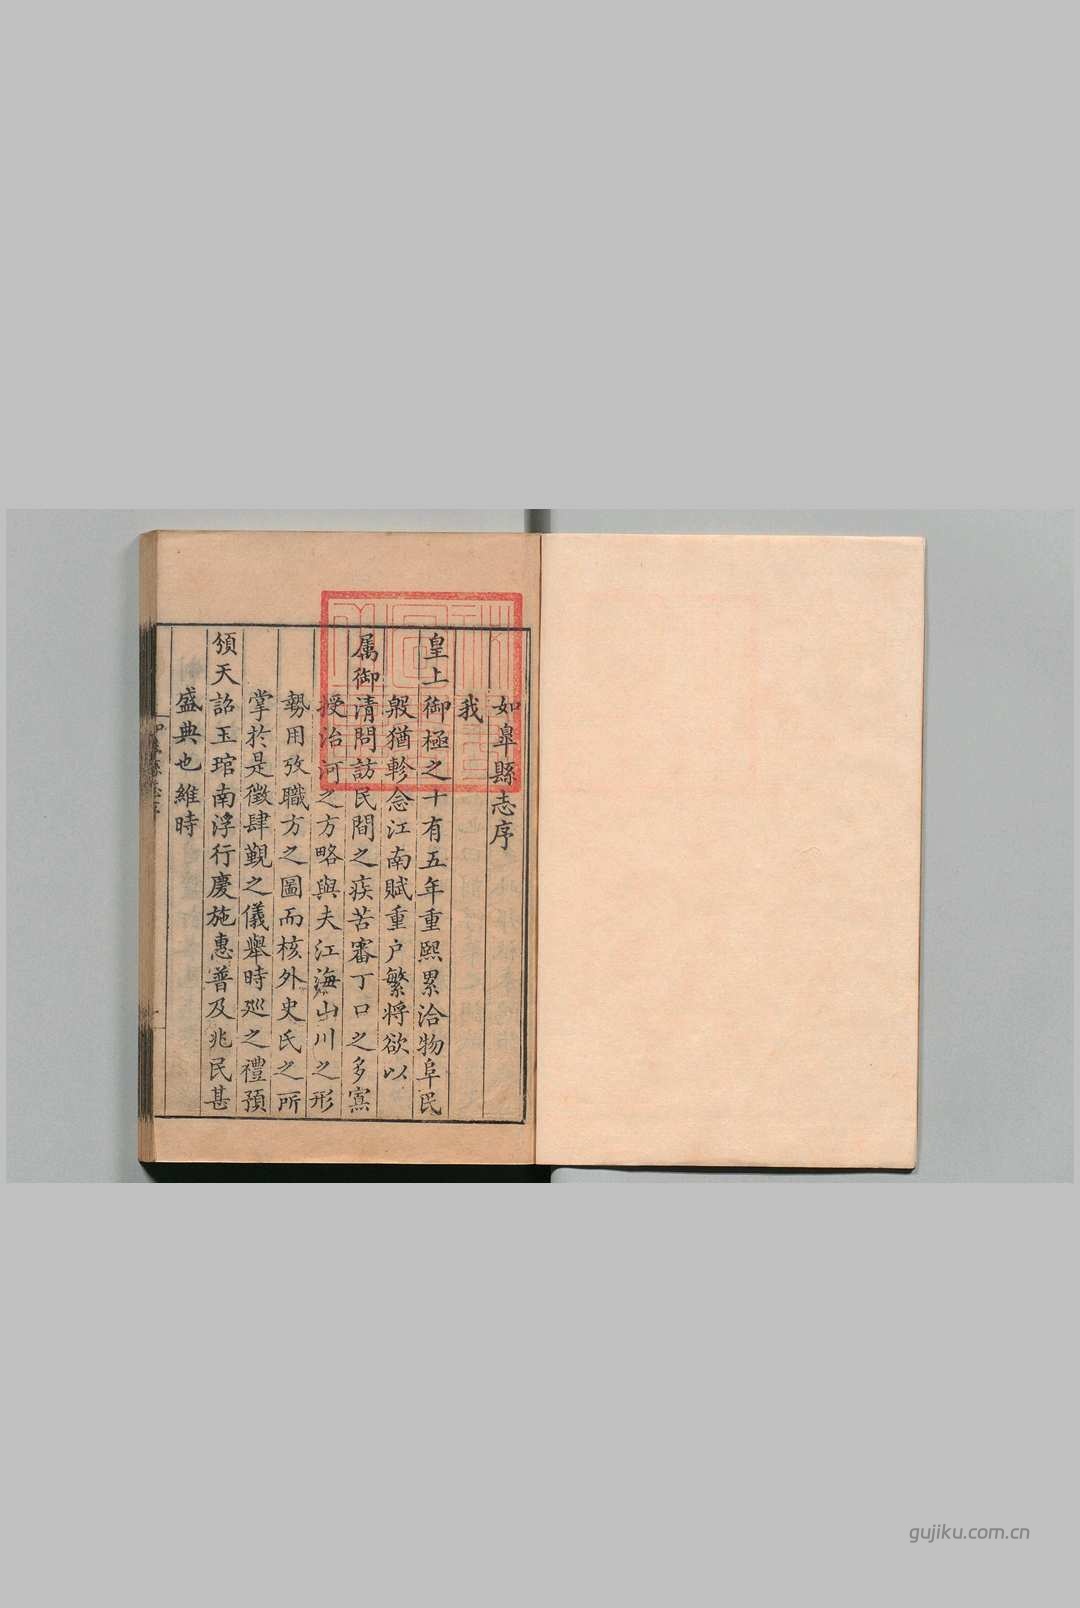 如臯縣志序
我
皇上御極之十有五年重熙累洽物阜民
殷猶軫念江南賦重户繁將欲以
属御清問訪民間之疾苦審丁口之多寡
授治河之方略與夫江海山川之形
勢用攷職方之圖而核外史氏之所
掌於是徵肆覲之儀舉時巡之禮預
頒天詔玉琯南浮行慶施惠普及兆民甚
盛典也維時
gujiku.com.cn